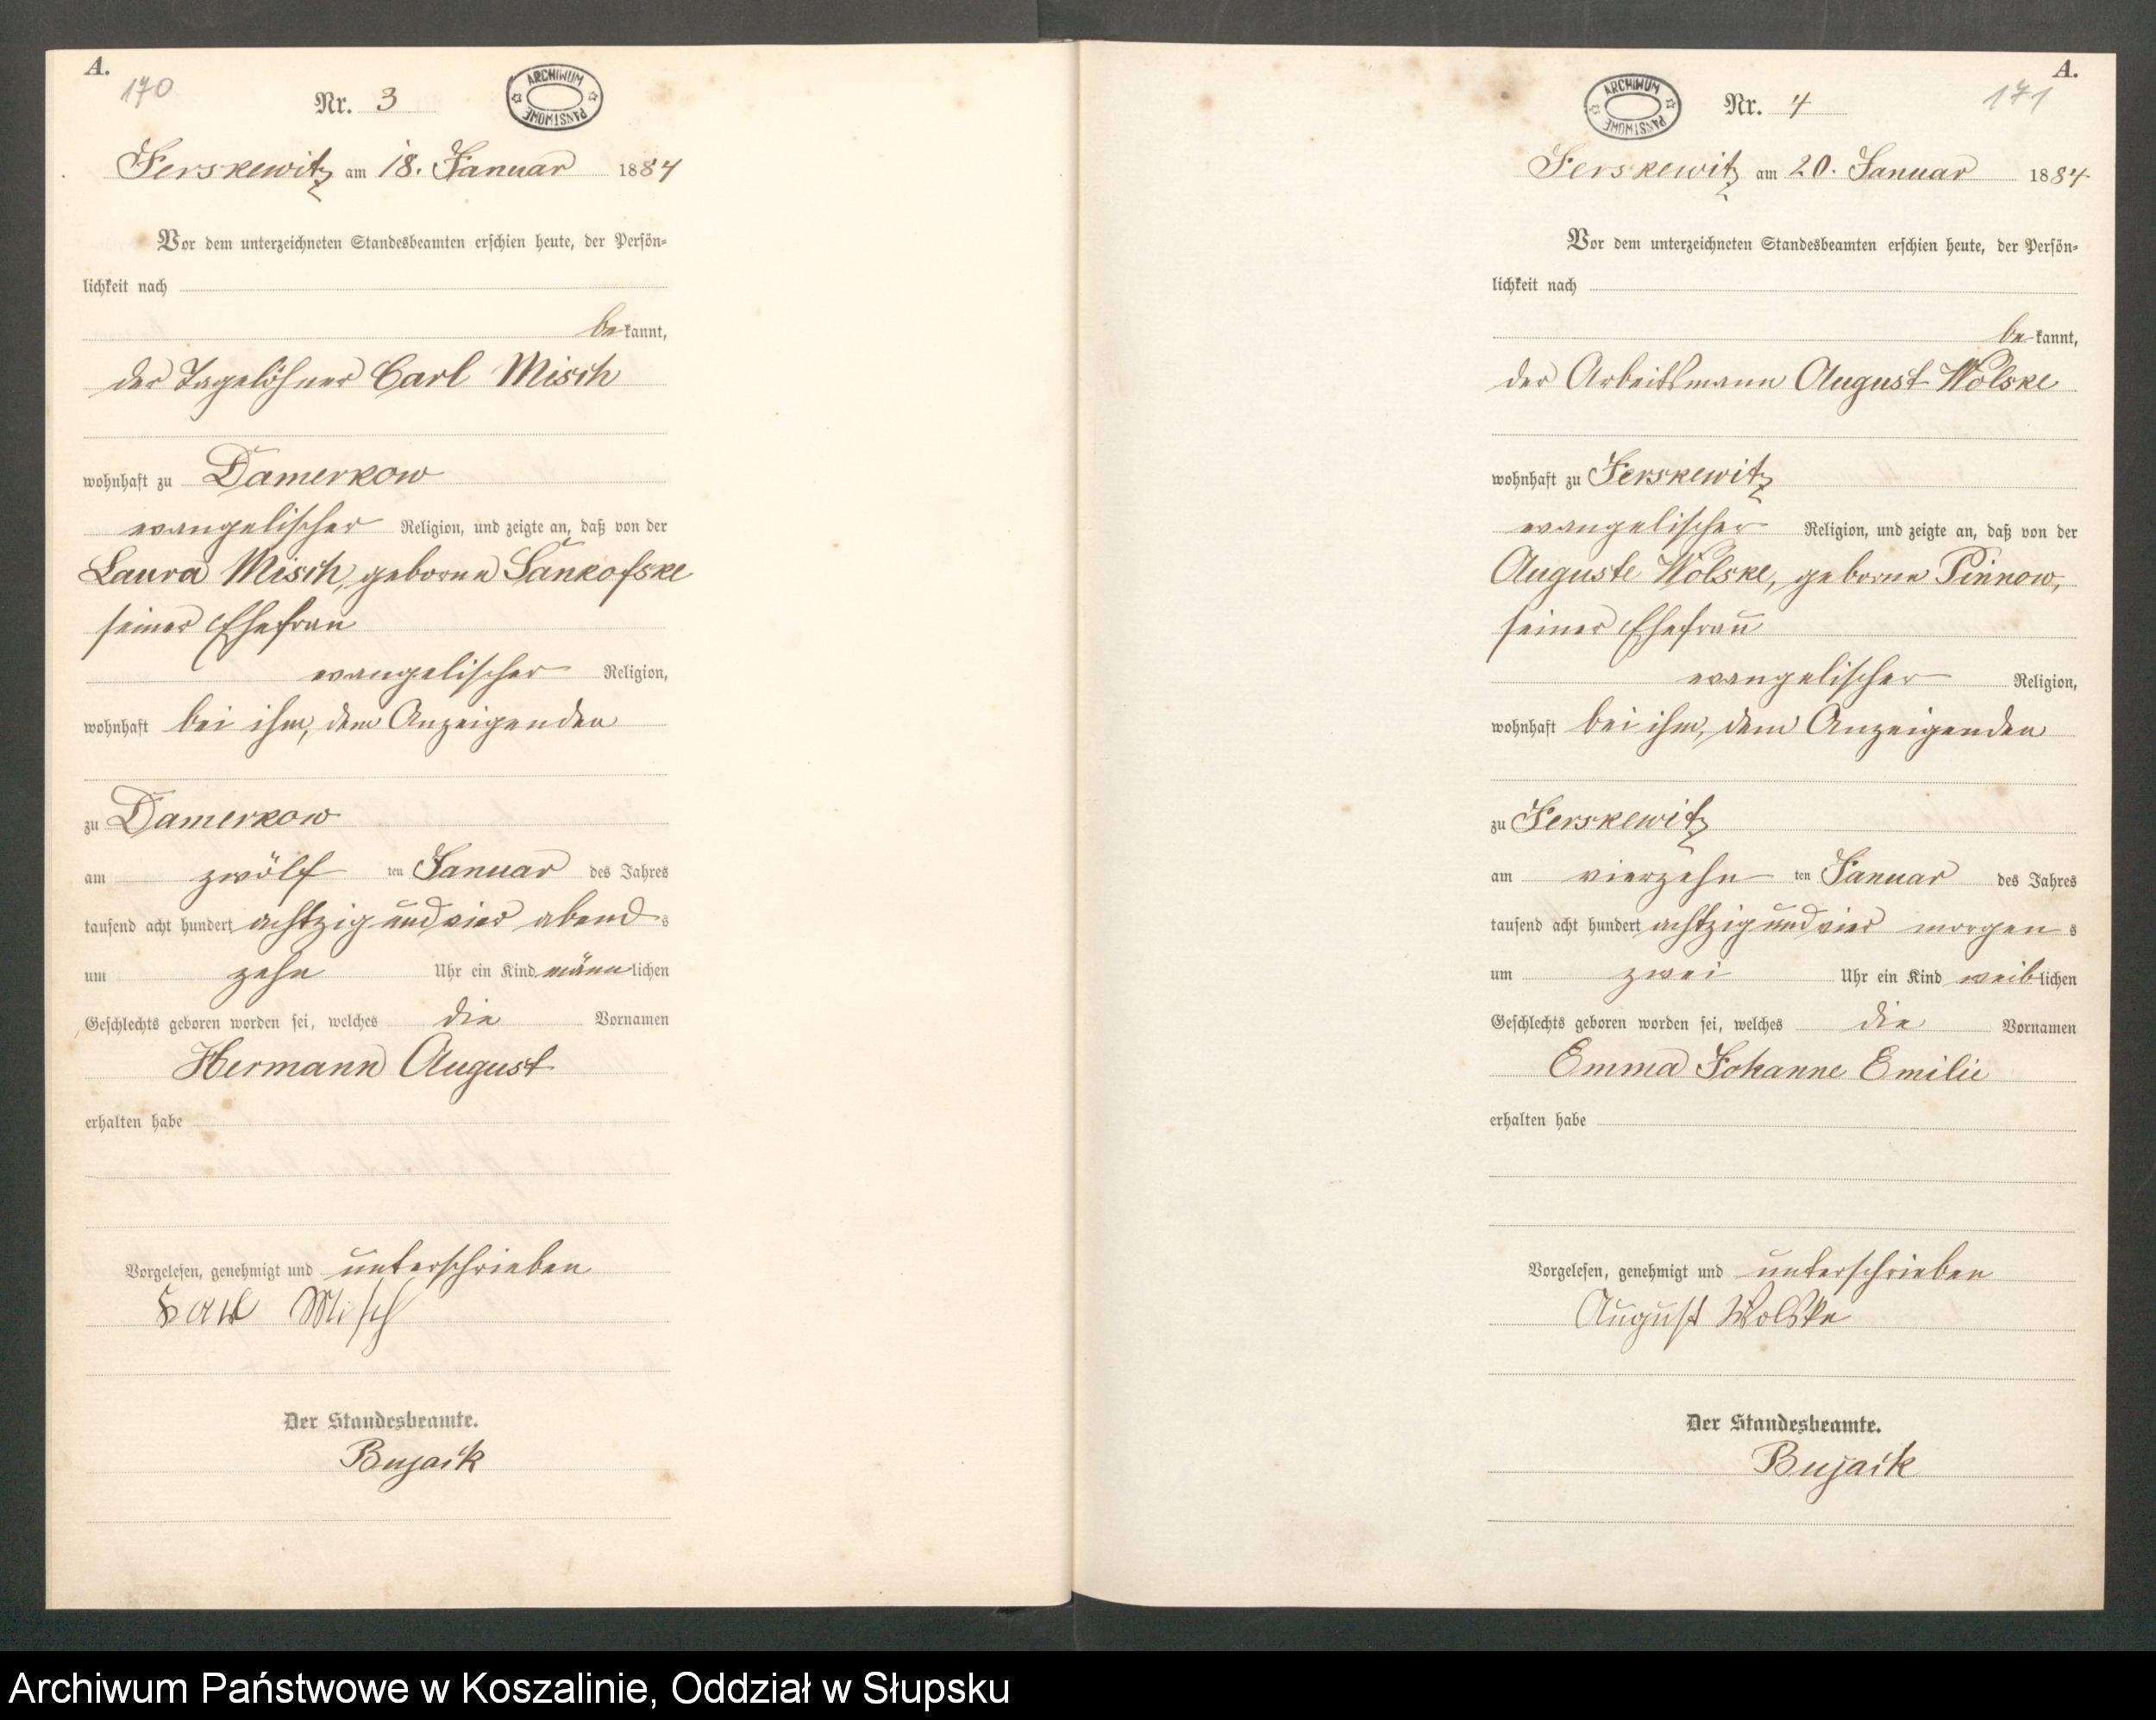 A.
170
Nr. 3
ARCHIWUM PAŃSTWOWE
Jerskewitz am 18. Januar 1884
Vor dem unterzeichneten Standesbeamten erschien heute, der Persön-
lichkeit nach
bekannt,
der Tagelöhner Carl Misch
wohnhaft zu Damerkow
evangelischer Religion, und zeigte an, daß von der
Laura Misch, geborne Sankofske
seiner Ehefrau
evangelischer Religion,
wohnhaft bei ihm, dem Anzeigenden
zu Damerkow
am zwölf ten Januar des Jahres
tausend acht hundert achtzig und vier abends
um zehn Uhr ein Kind männlichen
Geschlechts geboren worden sei, welches die Vornamen
Hermann August
erhalten habe
Vorgelesen, genehmigt und unterschrieben
Carl Misch
Der Standesbeamte.
Bujack
A.
171
Nr. 4
ARCHIWUM PAŃSTWOWE
Jerskewitz am 20. Januar 1884
Vor dem unterzeichneten Standesbeamten erschien heute, der Persön-
lichkeit nach
bekannt,
der Arbeitsmann August Wolske
wohnhaft zu Jerskewitz
evangelischer Religion, und zeigte an, daß von der
Auguste Wolske, geborne Pinnow,
seiner Ehefrau
evangelischer Religion,
wohnhaft bei ihm, dem Anzeigenden
zu Jerskewitz
am vierzehn ten Januar des Jahres
tausend acht hundert achtzig und vier morgens
um zwei Uhr ein Kind weiblichen
Geschlechts geboren worden sei, welches die Vornamen
Emma Johanne Emilie
erhalten habe
Vorgelesen, genehmigt und unterschrieben
August Wolske
Der Standesbeamte.
Bujack
Archiwum Państwowe w Koszalinie, Oddział w Słupsku